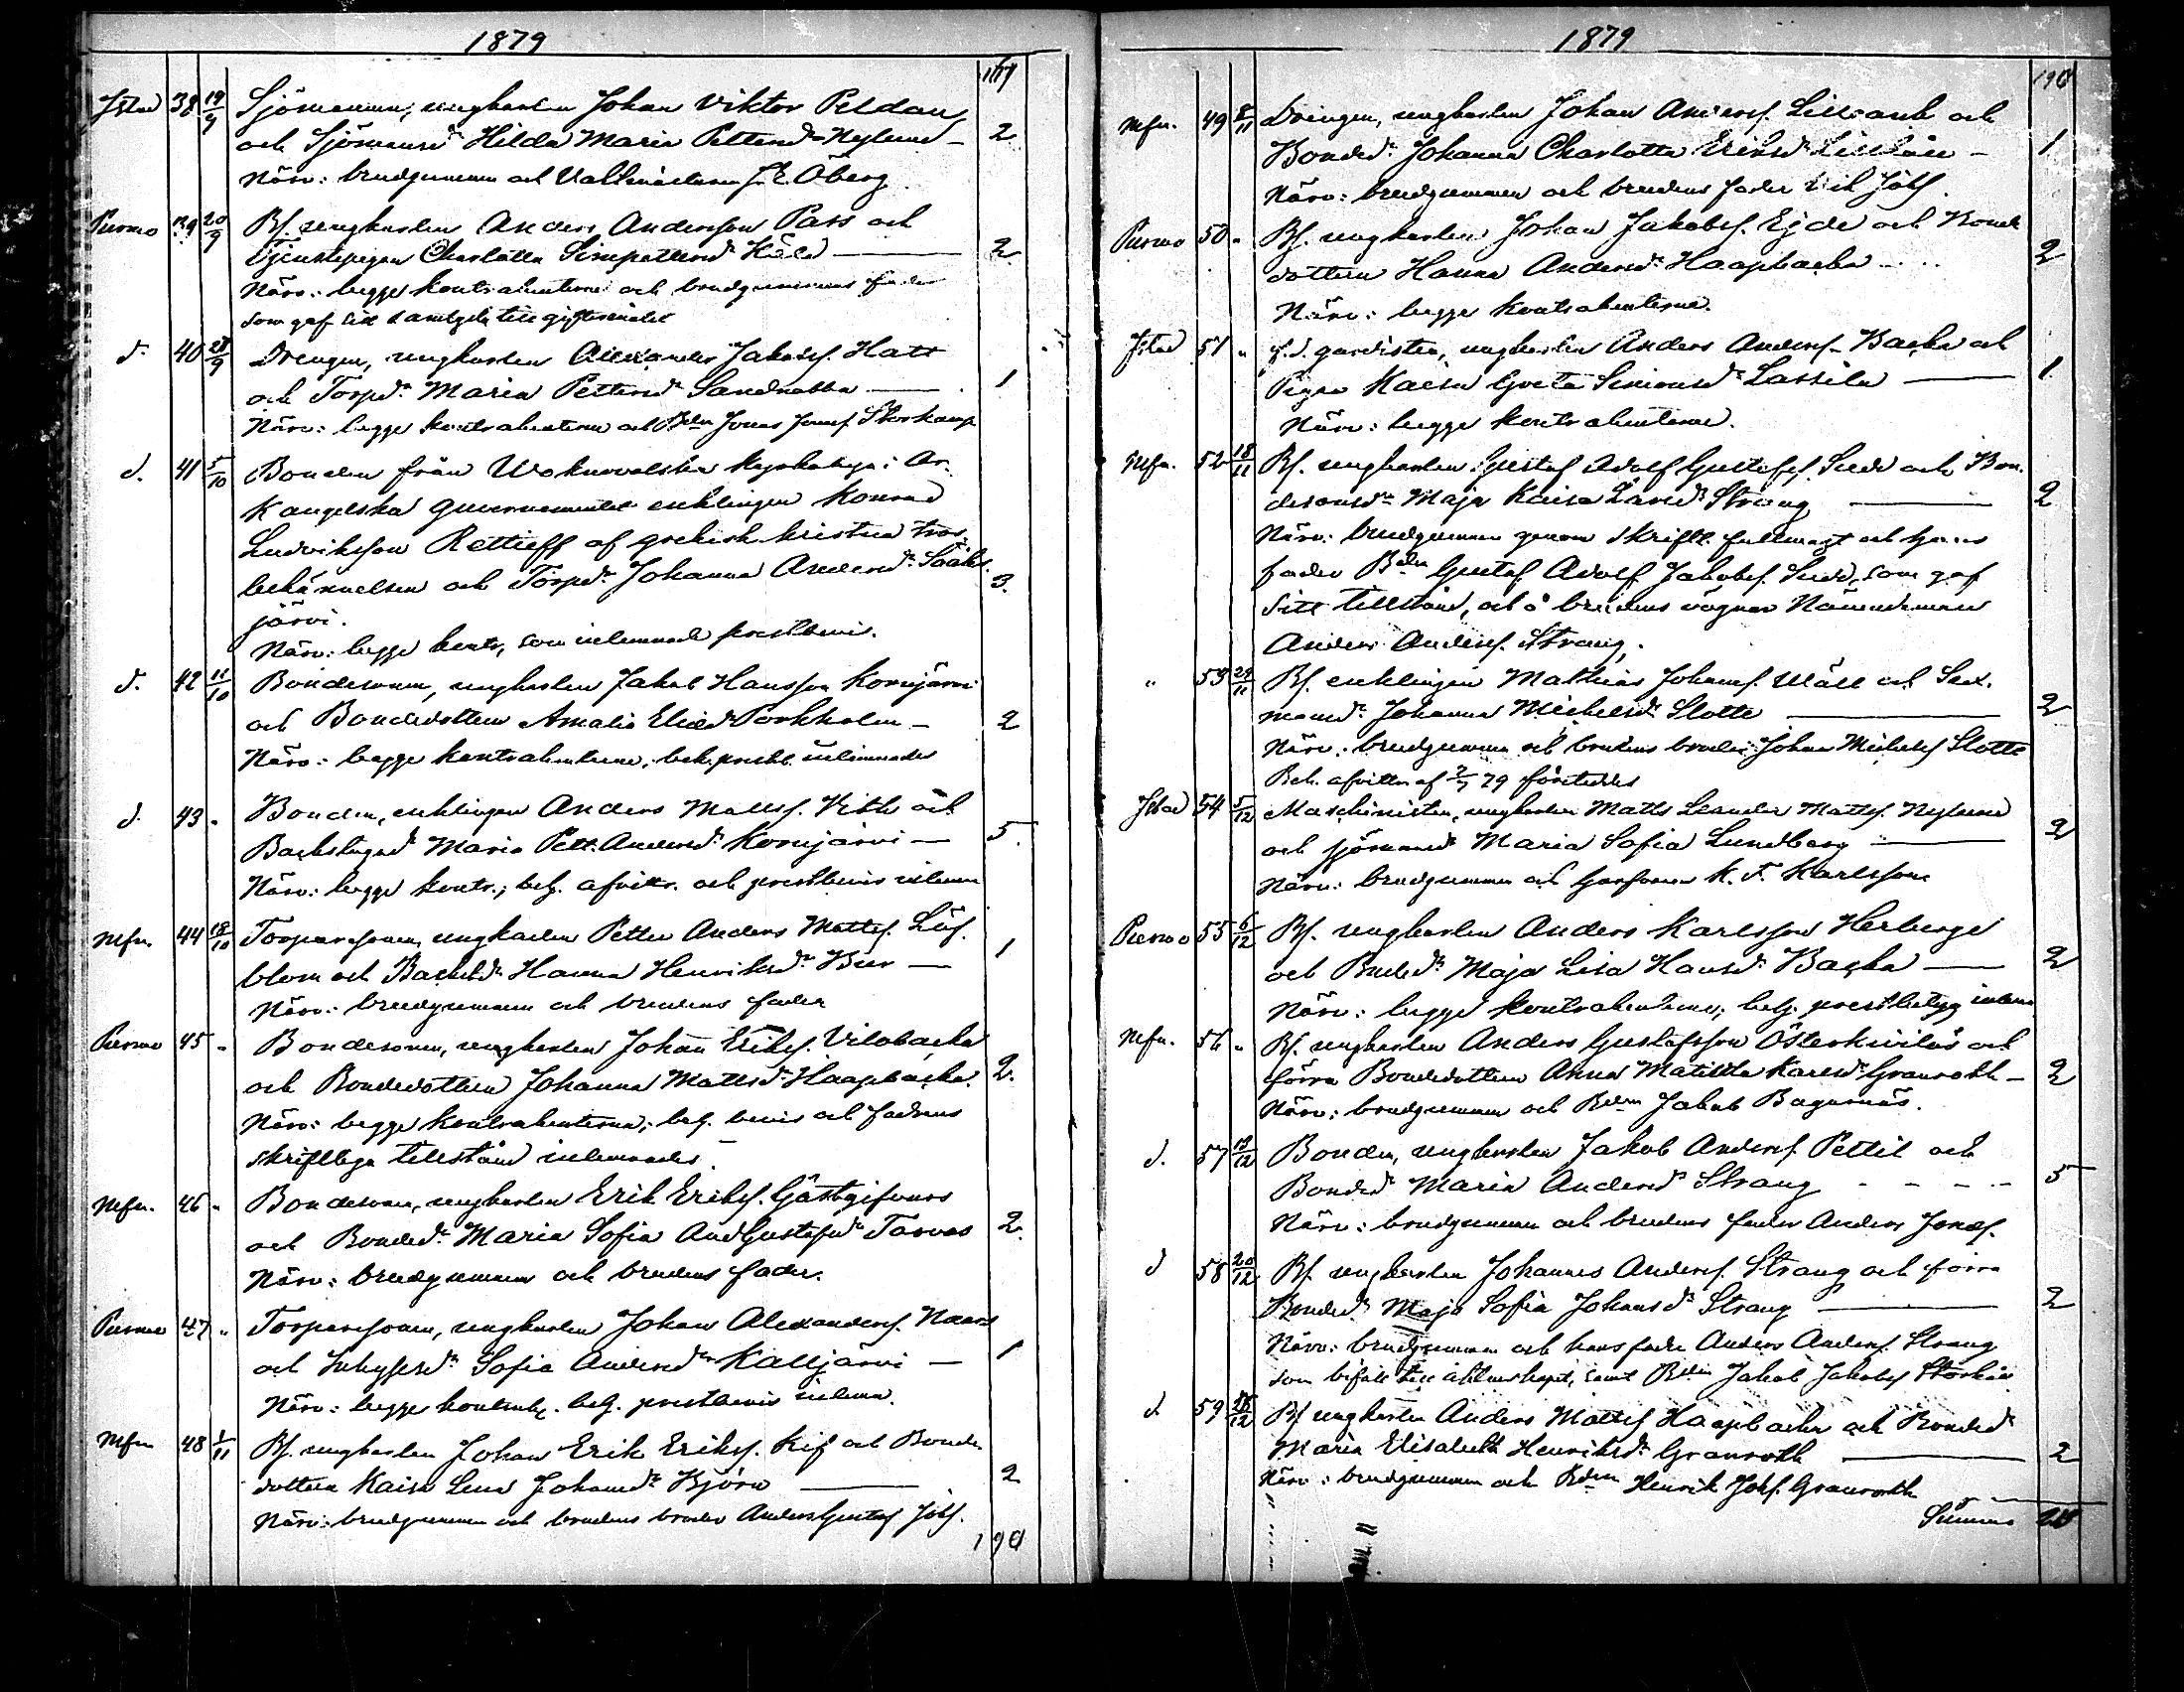 1879
Jstad 38 19/9 Sjömannen, ungkarlen Johan Viktor Peldan
och Sjömansd:r Hilda Maria Pettersd:r Nylund – 2
Närv: brudgummen och Vallmästaren Öberg
Purmo 39 20/9 Bs. ungkarlen Anders Andersson Pass och
Tjenstepigan Charlotta Simpettersd:r Käld — 2
Närv: begge kontrahenterne och brudgummens fader
som gaf sitt samtycke till giftermålet
d. 40 28/9 Drengen, ungkarlen Alexander Jakobss. Hatt
och Torpd:r Maria Pettersd:r Sandnabba — 1
Närv: begge kontrahenterne och Bdn Jonas Storkamp
d. 41 5/10 Bonden från i Ar-
kangelska guvernementet enklingen Konrad
Ludviksson Rettieff af grekisk kristna tros-
bekännelsen och Torpd:r Johanna Andersd:r Sääks- 3.
järvi.
Närv: begge kontr, som inlemnade prestbevis.
d. 42 11/10 Bondesonen, ungkarlen Jakob Hansson Kornjärvi
och Bondedottern Amalia Eliesd:r Porkholm – 2
Närv: begge kontrahenterne, beh. prestb. inlemnades
d. 43 " Bonden, enklingen Anders Mattss. Kith och
Backstugud:r Maria Pett. Andersd:r Kornjärvi — 5.
Närv: begge kontr.; beh. afvittr. och prestbevis inlemn
Nfn. 44 18/10 Torparesonen, ungkarlen Petter Anders Mattss. Löf-
blom och Backstd:r Hanna Henriksd:r Bur — 1
Närv: brudgummen och brudens fader
Purmo 45 " Bondesonen, ungkarlen Johan Erikss. Vilobacka
och Bondedottern Johanna Mattsd:r Haapbacka. 2.
Närv: begge kontrahenterna; beh. bevis och fadrens
skriftliga tillstånd inlemnades.
Nfn. 46 " Bondesonen, ungkarlen Erik Erikss. Gästgifvars
och Bonded:r Maria Sofia And Gustafsd:r Tarvas 2.
Närv: brudgummen och brudens fader.
Purmo 47 " Torparesonen, ungkarlen Johan Alexanderss.
och Inhysesd:r Sofia Andersd:r Kalljärvi — 1
Närv: begge kontrah. beh. prestbevis inlemn.
Nfn 48 1/11 Bs. ungkarlen Johan Erik Erikss. Rif och Bonde-
dottern Kaisa Lena Johansd:r Björn — 2
Närv: brudgummen och brudens broder Anders Gustaf Johs.
190
1879
190
Nfn. 49 8/11 Drengen, ungkarlen Johan Anderss. Lillrank och
Bonded:r Johanna Charlotta Eriksd:r – 1
Närv: brudgummen och brudens fader Erik Johs.
Purmo 50 " Bs. ungkarlen Johan Jakobss. Ejde och Bonde
dottern Hanna Andersd:r Haapbacka . . . 2
Närv: begge kontrahenterne.
Jstad 51 " f.d. gardisten, ungkarlen Anders Anderss. Backa och
Pigan Kaisa Greta Simonsd:r Lassila — 1
Närv: begge kontrahenterne.
Nfn. 52 18/11 Bs. ungkarlen Gustaf Adolf Gustafss. Sudd och Bon-
desonsd:r Maja Kaisa Larsd:r Strang — 2
Närv: brudgummen genom skriftl. fullmagt och hans
fader Bdn Gustaf Adolf Jakobss. Sudd, som gaf
sitt tillstånd, och å brudens vägnar Nämndeman
Anders Anderss. Strang.
" 53 29/11 Bs. enklingen Mathias Johanss. Wäll och Sex-
mansd:r Johanna Michelsd:r Slotte — 2
Närv: brudgummen och brudens broder Johan Michelss Slotte
Beh. afvittr. af 2/7 79 företeddes
Jstad 54 5/12 Maschinisten, ungkarlen Matts Leander Mattss. Nylund
och sjömansd:r Maria Sofia Lundberg — 2
Närv: brudgummen och K. F. Karlsson
Purmo 55 6/12 Bs. ungkarlen Anders Karlsson Herberge
och Bonded:r Maja Lisa Hansd:r Backa — 2
Närv: begge kontrahenterne; beh. prestbetyg inlemn
Nfn. 56 " Bs. ungkarlen Anders Gustafsson Österkivilös och
förra Bondedottern Anna Matilda Karlsd:r Granroth – 2
Närv: brudgummen och Bdn Jakob Bagarnäs.
d. 57 13/12 Bonden, ungkarlen Jakob Anderss. Pettil och
Bonded:r Maria Andersd:r Strang - - - 5
Närv: brudgummen och brudens fader Anders Jonass.
d 58 20/12 Bs. ungkarlen Johannes Anderss. Strang och förra
Bonded:r Maja Sofia Johansd:r Strang — 2
Närv: brudgummen och hans fader Anders Anderss. Strang
som biföll till äktenskapet, samt Bdn Jakob Jakobss Storkåi
d. 59 28/12 Bs ungkarlen Anders Mattss Haapbacka och Bonded:r
Maria Elisabeth Henriksd:r Granroth — 2
Närv: brudgummen och Bdn Henrik Johs. Granroth
Summa